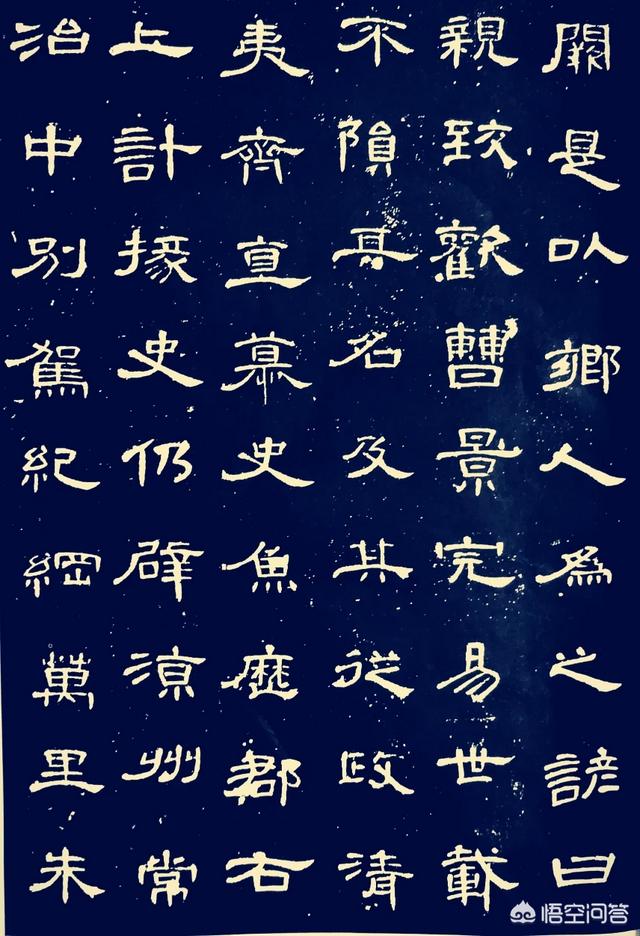 闕是以鄉人為之諺曰
親致歡曹景完易世載
不隕其名及其從政清
夷齊直慕史魚歷郡右
上計掾史仍辟涼州常
治中別駕紀綱萬里朱
悟空问答